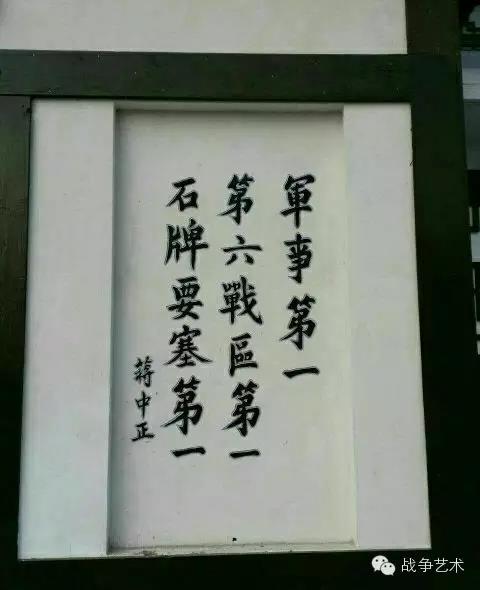 軍事第一
第六戰區第一
石牌要塞第一
蔣中正
战争艺术